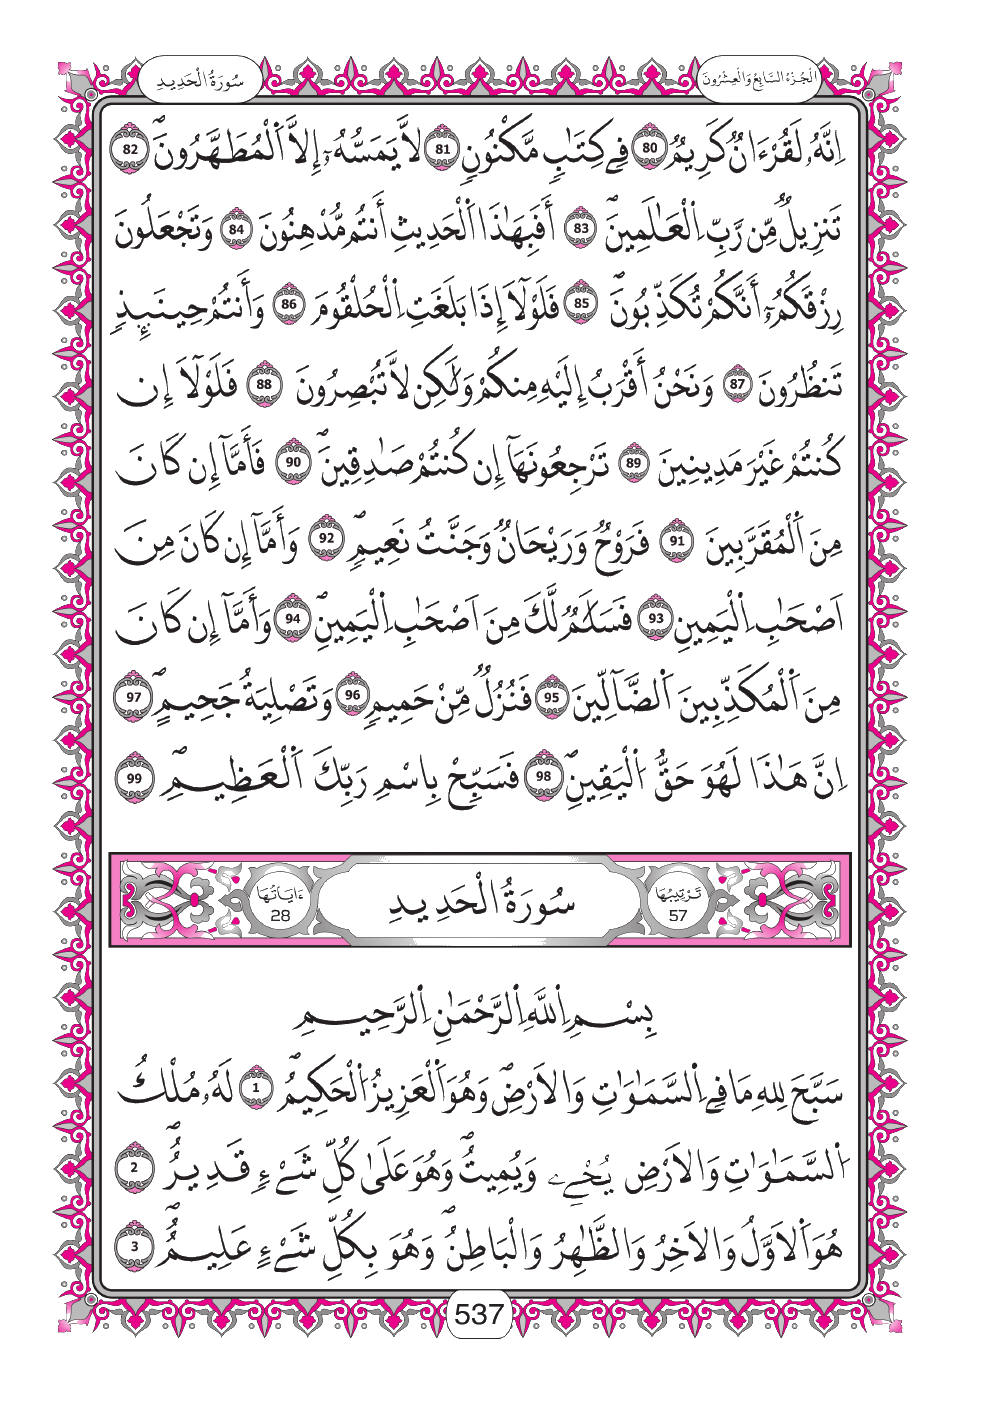 سُورَةُ الْحَدِيدِ
الْجُزْءُ السَّابِعُ وَالْعِشْرُونَ
اِنَّهُۥ لَقُرْءَانٌ كَرِيمٌ 80 فِے كِتَٰبٍ مَّكْنُونٍ 81 لاَّ يَمَسُّهُۥٓ إِلاَّ اَ۬لْمُطَهَّرُونَۖ 82
تَنزِيلٌ مِّن رَّبِّ اِ۬لْعَٰلَمِينَۖ 83 أَفَبِهَٰذَا اَ۬لْحَدِيثِ أَنتُم مُّدْهِنُونَ 84 وَتَجْعَلُونَ
رِزْقَكُمُۥٓ أَنَّكُمْ تُكَذِّبُونَۖ 85 فَلَوْلَآ إِذَا بَلَغَتِ اِ۬لْحُلْقُومَ 86 وَأَنتُمْ حِينَئِذٍ
تَنظُرُونَ 87 وَنَحْنُ أَقْرَبُ إِلَيْهِ مِنكُمْ وَلَٰكِن لاَّ تُبْصِرُونَ 88 فَلَوْلَآ إِن
كُنتُمْ غَيْرَ مَدِينِينَ 89 تَرْجِعُونَهَآ إِن كُنتُمْ صَٰدِقِينَۖ 90 فَأَمَّآ إِن كَانَ
مِنَ اَ۬لْمُقَرَّبِينَ 91 فَرَوْحٌ وَرَيْحَانٌ وَجَنَّتُ نَعِيمٍۖ 92 وَأَمَّآ إِن كَانَ مِنَ
اَصْحَٰبِ اِ۬لْيَمِينِ 93 فَسَلَٰمٌ لَّكَ مِنَ اَصْحَٰبِ اِ۬لْيَمِينِۖ 94 وَأَمَّآ إِن كَانَ
مِنَ اَ۬لْمُكَذِّبِينَ اَ۬لضَّآلِّينَ 95 فَنُزُلٌ مِّنْ حَمِيمٍ 96 وَتَصْلِيَةُ جَحِيمٍۖ 97
اِنَّ هَٰذَا لَهُوَ حَقُّ اُ۬لْيَقِينِۖ 98 فَسَبِّحْ بِاسْمِ رَبِّكَ اَ۬لْعَظِيمِۖ 99
تَرْتِيبُهَا 57
سُورَةُ الْحَدِيدِ
ءَايَاتُهَا 28
بِسْمِ اِ۬للَّهِ اِ۬لرَّحْمَٰنِ اِ۬لرَّحِيمِ
سَبَّحَ لِلهِ مَا فِے اِ۬لسَّمَٰوَٰتِ وَالاَرْضِۖ وَهُوَ اَ۬لْعَزِيزُ اُ۬لْحَكِيمُۖ 1 لَهُۥ مُلْكُ
اُ۬لسَّمَٰوَٰتِ وَالاَرْضِ يُحْيِۦ وَيُمِيتُۖ وَهُوَ عَلَىٰ كُلِّ شَےْءٍ قَدِيرٌۖ 2
هُوَ اَ۬لاَوَّلُ وَالاَخِرُ وَالظَّٰهِرُ وَالْبَاطِنُۖ وَهُوَ بِكُلِّ شَےْءٍ عَلِيمٌۖ 3
537